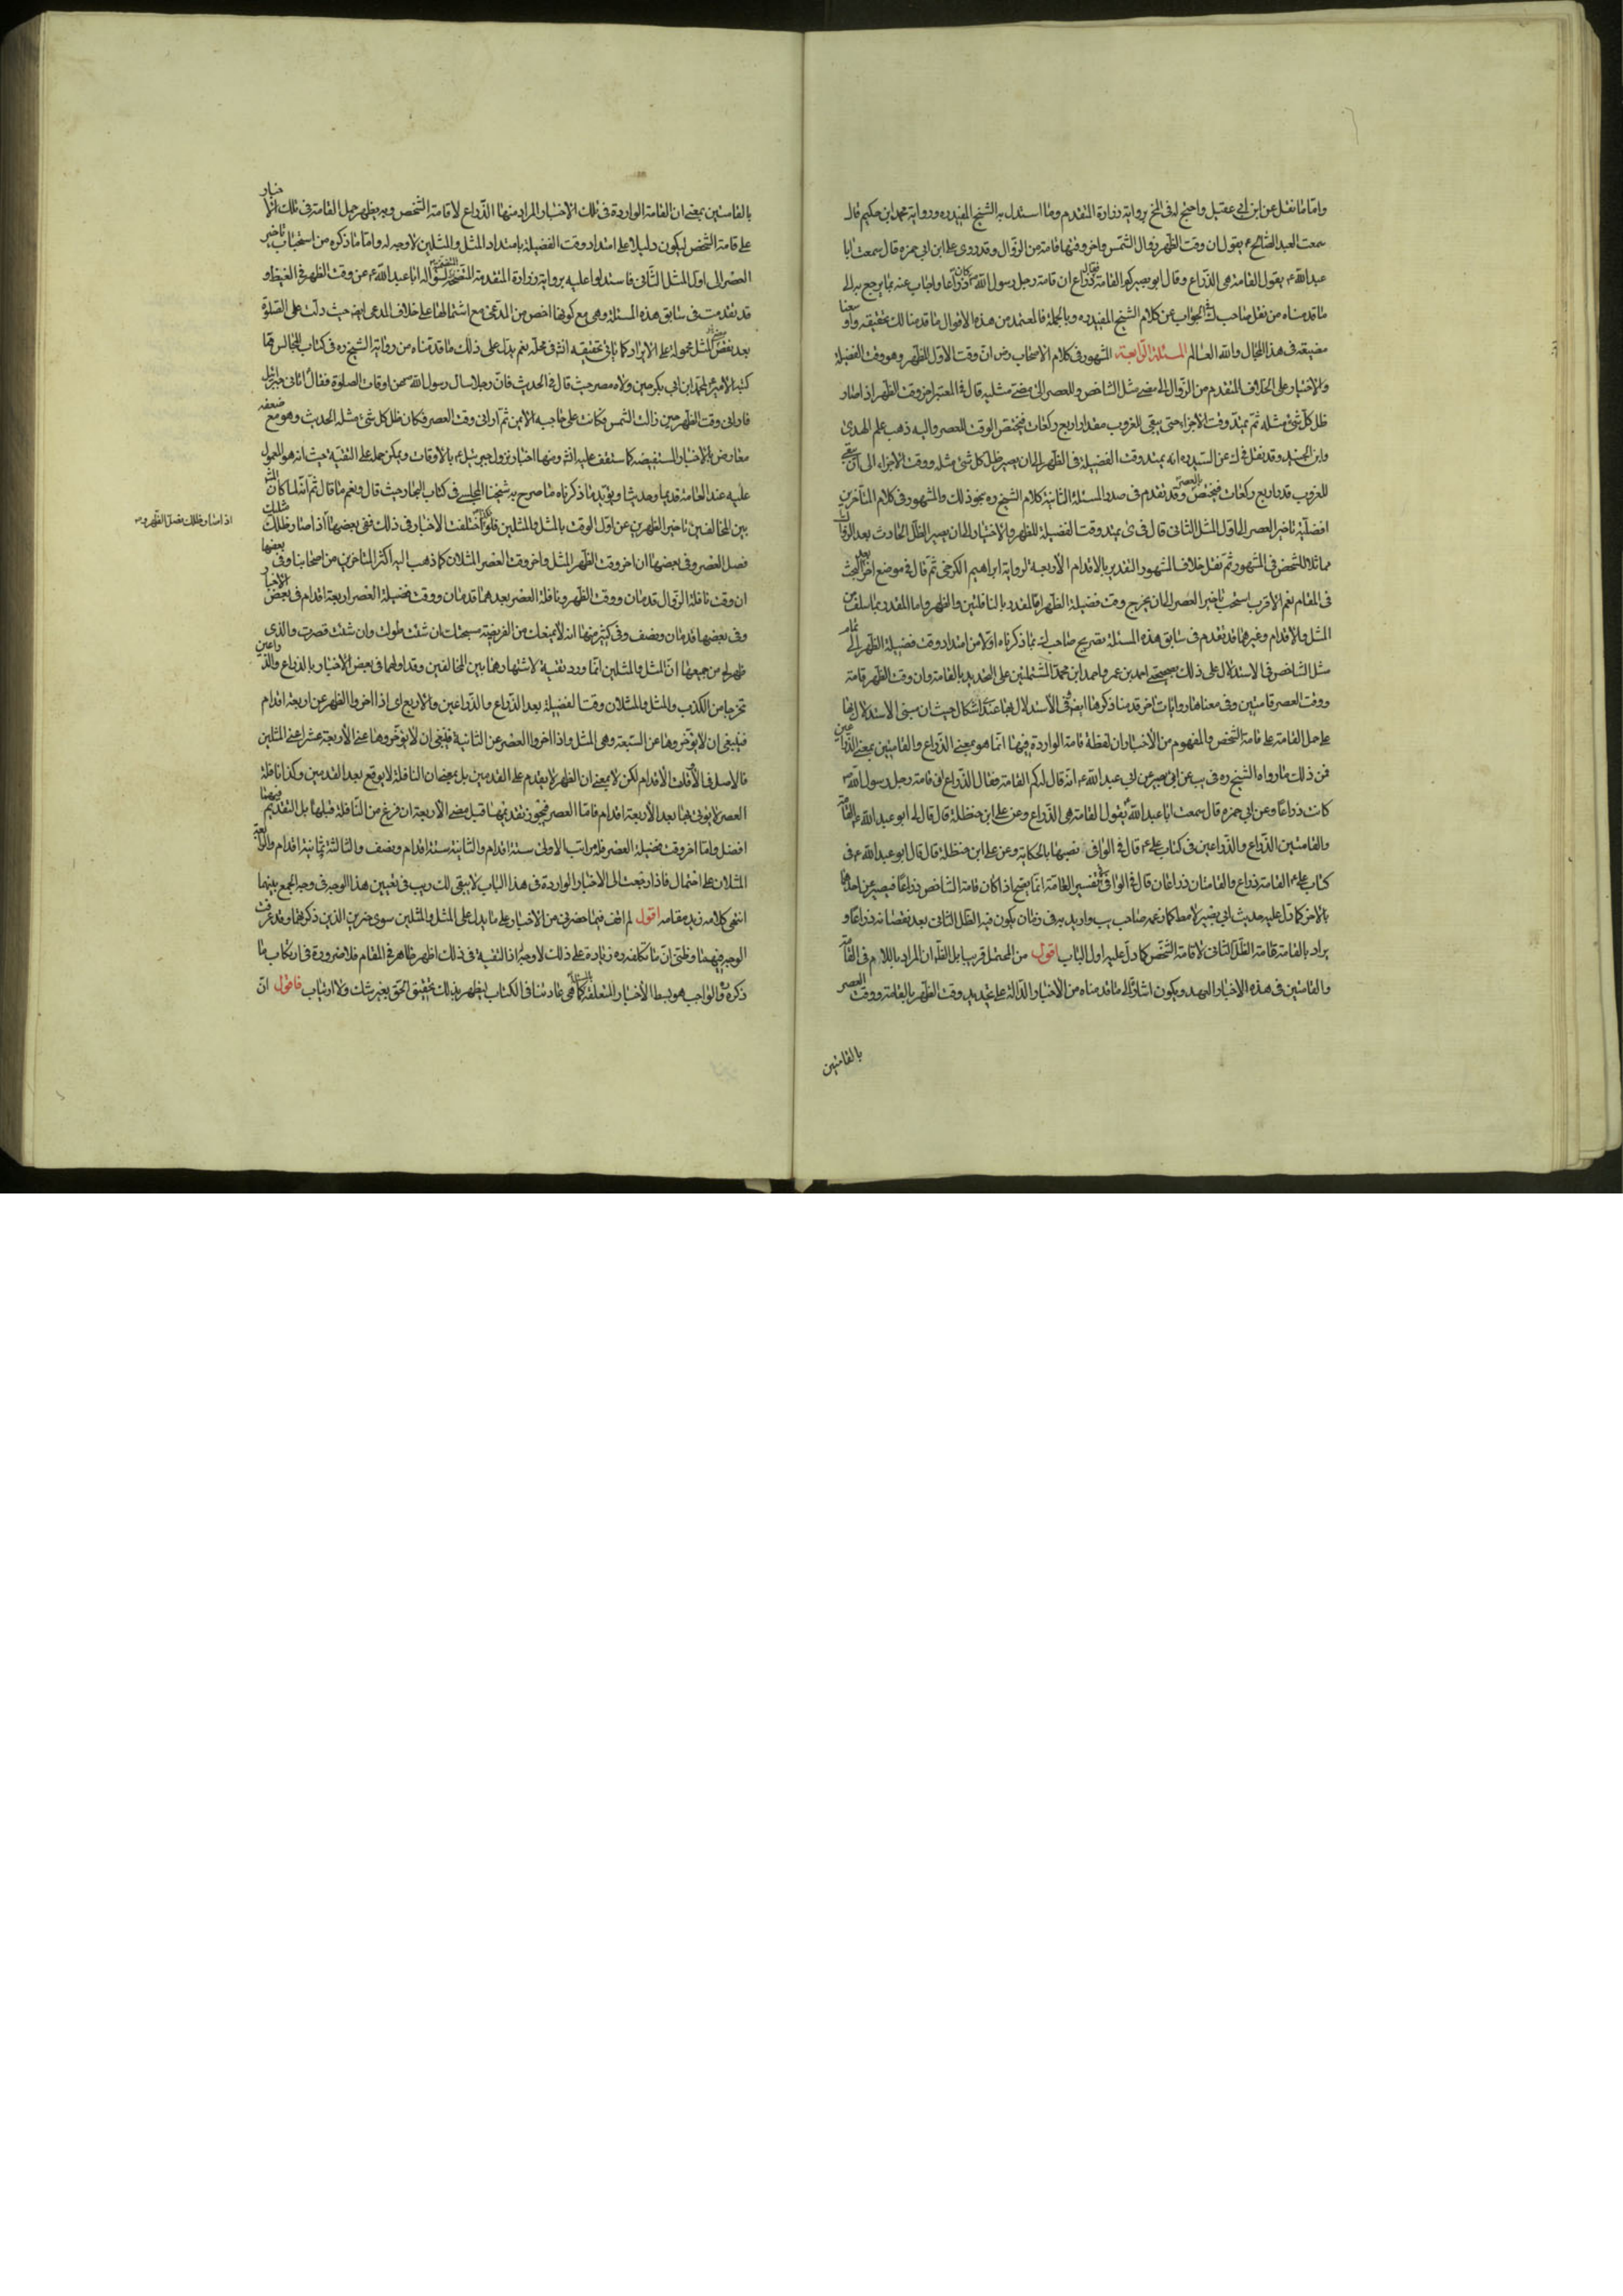 واما ما نقل عن ابن ابي عقيل واحتج له في المخ برواية زرارة المتقدم وما استدل به الشيخ المفيد ره ورواية محمد ابن حكيم قال
سمعت العبد الصالح ع يقول ان وقت الظهر زوال الشمس واخر وقتها قامة من الزوال وقد روى علي ابن ابي حمزه قال سمعت ابا
عبد الله ع يقول القامة هي الذراع وقال ابو بصير كم القامة فقال ذراع ان قامة رحل رسول الله ص كان ذراعا واجاب عنه بما يرجع الى
ما قدمناه من نقل صاحب الجواب عن كلام الشيخ المفيد ره وبالجملة فالمعتمد من هذه الاقوال ما قدمنا لك تحقيقه واوسعنا
مضيقه في هذا المجال والله العالم المسئلة الرابعة المشهور في كلام الاصحاب رض ان وقت الاول للظهر وهو وقت الفضيلة
والاختيار على الخلاف المتقدم من الزوال الى مضي مثل الشاخص وللعصر الى مضي مثليه قال في المعتبر اخر وقت الظهر اذا صار
ظل كل شئ مثله ثم يمتد وقت الاجزاء حتى يبقى للغروب مقدار اربع ركعات فيختص الوقت للعصر واليه ذهب علم الهدى
وابن الجنيد وقد نقل في ك عن السيد ره انه يمتد وقت الفضيلة في الظهر الى ان يصير ظل كل شئ مثله ووقت الاجزاء الى ان يبقى
للغروب قدر اربع ركعات فيختص بالعصر وقد تقدم في صدر المسئلة الثانية كلام الشيخ ره بنحو ذلك والمشهور في كلام المتأخرين
افضلية تاخير العصر الى اول المثل الثاني قال في ى يمتد وقت الفضيلة للظهر والاختيار الى ان يصير الظل الحادث بعد الزوال
مماثلا للشخص في المشهور ثم نقل خلاف المشهور التقدير بالاقدام الأربعة لرواية ابراهيم الكرخي ثم قال في موضع اخر بعد البحث
في المقام نعم الاقرب استحب تاخير العصر الى ان يخرج وقت فضيلة الظهر اما المقدر بالنافلتين والظهر واما المقدر بما سلف من
المثل والاقدام وغيرهما وقد تقدم في سابق هذه المسئلة تصريح صاحب ك بما ذكرناه اولا من امتداد وقت فضيلة الظهر الى تمام
مثل الشاخص في الاستدلال على ذلك بصحيحتي احمد بن عمر واحمد ابن محمد المشتملتين على التحديد بالقامة وان وقت الظهر قامة
ووقت العصر قامتين وفي معناها روايات اخر قدمنا ذكرها ايضا وفي الاستدلال بها عندى اشكال حيث ان مبنى الاستدلال بها
على حمل القامة على قامة الشخص والمفهوم من الأخبار ان لفظة قامة الواردة فيها انما هو بمعنى الذراع والقامتين بمعنى الذراعين
فمن ذلك ما رواه الشيخ ره في يب عن ابي بصير عن ابي عبد الله ع انه قال له كم القامة فقال الذراع ان قامة رحل رسول الله ص
كانت ذراعا وعن ابي حمزه قال سمعت ابا عبد الله ع يقول القامة هي الذراع وعن علي ابن حنظلة قال قال لي ابو عبد الله ع القامة
والقامتين الذراع والذراعين في كتاب علي ع قال في الوافي نصبها بالحكاية وعن علي ابن حنظلة قال قال ابو عبد الله ع في
كتاب علي ع القامة ذراع والقامتان ذراعان قال في الوافي تفسير القامة انما يصح اذا كان قامة الشاخص ذراعا فيعبر عن احدهما
بالاخر كما دل عليه حديث ابي بصير لا مطلقا كما زعمه صاحب يب واريد به في زمان يكون فيه الظل الثاني بعد نقصانه ذراعا و
يراد بالقامة قامة الظل الثاني لا قامة الشخص كما دل عليه اول الباب اقول من المحتمل قريبا بل الظ ان المراد باللام في القامة
والقامتين في هذه الاخبار العهد ويكون اشارة الى ما قدمناه من الأخبار الدالة على تحديد وقت الظهر بالقامة ووقت العصر
بالقامتين
بالقامتين بمعنى ان القامة الواردة في تلك الاخبار المراد منها الذراع لا قامة الشخص وبه يظهر حمل القامة في تلك الاخبار
على قامة الشخص ليكون دليلا على امتداد وقت الفضيلة بامتداد المثل والمثلين لا وجه له واما ما ذكره من استحباب تاخير
العصر الى اول المثل الثاني فاستدلوا عليه برواية زرارة المتقدمة المتضمنة لسؤاله ابا عبد الله ع عن وقت الظهر في القيظ و
قد تقدمت في سابق هذه المسئلة وهي مع كونها اخص من المدعى مع اشتمالها على خلاف المدعى ايضا حيث دلت على الصلوة
بعد مضي المثل محمولة على الابراد كما ياتي تحقيقه انش في محله نعم يدل على ذلك ما قدمناه من رواية الشيخ ره في كتاب المجالس فيما
كتبه الامير ع لمحمد ابن ابي بكر حين ولاه مصر حيث قال في الحديث فان رجلا سال رسول الله ص عن اوقات الصلوة فقال اتاني جبرئيل
فاراني وقت الظهر حين زالت الشمس وكانت على حاجبه الايمن ثم اراني وقت العصر وكان ظل كل شئ مثله الحديث وهو مع ضعفه
معارض بالاخبار المستفيضة كما ستقف عليه انش ومنها اخبار نزول جبرئيل ع بالأوقات ويمكن حمله على التقية حيث انه هو المعمول
عليه عند العامة قديما وحديثا ويؤيد ما ذكرناه ما صرح به شيخنا المجلسي في كتاب البحار حيث قال ونعم ما قال ثم انه لما كان المش
بين المخالفين تاخير الظهرين عن اول الوقت بالمثل والمثلين اختلفت الأخبار في ذلك ففي بعضها اذا صار ظلك مثليك
اذا صار ظلك مثلك فصل الظهر و
فصل العصر وفي بعضها ان اخر وقت الظهر المثل واخر وقت العصر المثلان كما ذهب اليه اكثر المتاخرين من اصحابنا وفي بعضها
ان وقت نافلة الزوال قدمان ووقت الظهر ونافلة العصر بعدهما قدمان ووقت فضيلة العصر اربعة اقدام في بعض الاخبار
وفي بعضها قدمان ونصف وفي كثير منها انه لا يمنعك من الفريضة سبحتك ان شئت طولت وان شئت قصرت والذى
ظهر لي من جميعها ان المثل والمثلين انما ورد تقية لاشتهارهما بين المخالفين وقد اولوهما في بعض الأخبار بالذراع والذراعين
تحرجا من الكذب والمثل والمثلان وقت الفضيلة بعد الذراع والذراعين والاربع اى اذا اخروا الظهر عن اربعة اقدام
فينبغي ان لا يؤخروها عن السبعة وهي المثل واذا اخروا العصر عن الثمانية فينبغي ان لا يؤخروها عن الأربعة عشر اعني المثلين
فالاصل في الأوقات الاقدام لكن لا بمعنى ان الظهر لا يقدم على القدمين بل بمعنى ان النافلة لا يوقع بعد القدمين وكذا نافلة
العصر لا يؤتى بها بعد الأربعة اقدام فاما العصر فيجوز تقديمها قبل مضي الأربعة ان فرغ من النافلة قبلها بل التقديم فيهما
افضل واما اخر وقت فضيلة العصر فله مراتب الاولى ستة اقدام والثانية ستة اقدام ونصف والثالثة ثمانية اقدام والرابعة
المثلان على احتمال فاذا رجعت الى الاخبار الواردة في هذا الباب لا يبقى لك ريب في تعيين هذا الوجه في وجه الجمع بينهما
انتهى كلامه زيد مقامه اقول لم اقف فيما حضرني من الاخبار على ما يدل على المثل والمثلين سوى خبرين الذين ذكرهما وقد عرفت
الوجه فيهما وظني ان ما تكلفه ره زيادة على ذلك لا وجه له اذ التقية في ذلك اظهر ظاهر في المقام فلا ضرورة في ارتكاب ما
ذكره والواجب هو بسط الأخبار المتعلقة بالمسئلة كما هي عادتنا في الكتاب ليظهر بذلك تحقيق الحق بغير شك ولا ارتياب فاقول ان